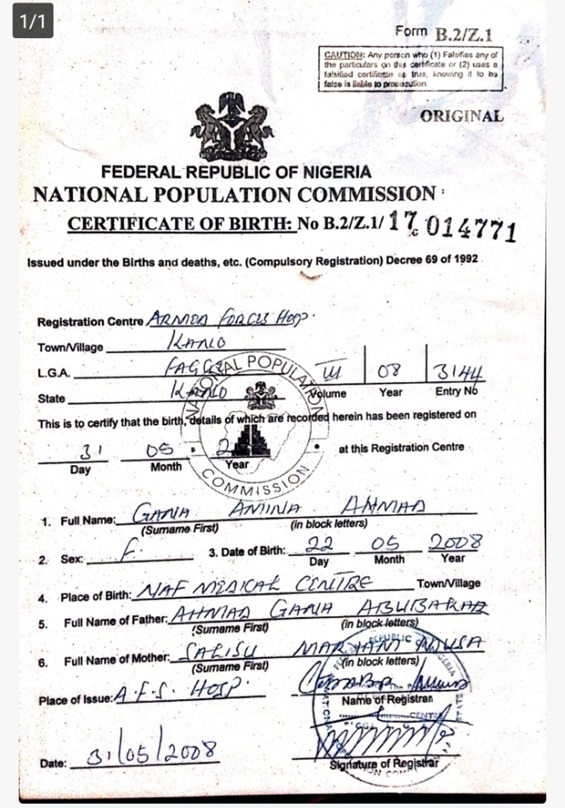 1/1
Form B.2/Z.1
CAUTION: Any person who (1) Falsifies any of
the particulars on this certificate or (2) uses a
falsified certificate as true, knowing it to be
false is liable to prosecution.
ORIGINAL
FEDERAL REPUBLIC OF NIGERIA
NATIONAL POPULATION COMMISSION
CERTIFICATE OF BIRTH: No B.2/Z.1/ 17 014771
Issued under the Births and deaths, etc. (Compulsory Registration) Decree 69 of 1992
Registration Centre ARMED FORCES HOSP.
Town/Village KANO
L.G.A. FAGGE
State KANO
III 08 3144
Volume Year Entry No
NATIONAL POPULATION COMMISSION
This is to certify that the birth, details of which are recorded herein has been registered on
31 05 at this Registration Centre
Day Month Year
1. Full Name: GANA AMINA AHMAD
(Surname First) (in block letters)
2. Sex: F. 3. Date of Birth: 22 05 2008
Day Month Year
4. Place of Birth: NAF MEDICAL CENTRE Town/Village
5. Full Name of Father: AHMAD GANA ABUBAKAR
(Surname First) (in block letters)
6. Full Name of Mother: SALISU MARYAM MUSA
(Surname First) (in block letters)
Place of Issue: A.F.S. HOSP.
Name of Registrar
Date: 31/05/2008
Signature of Registrar